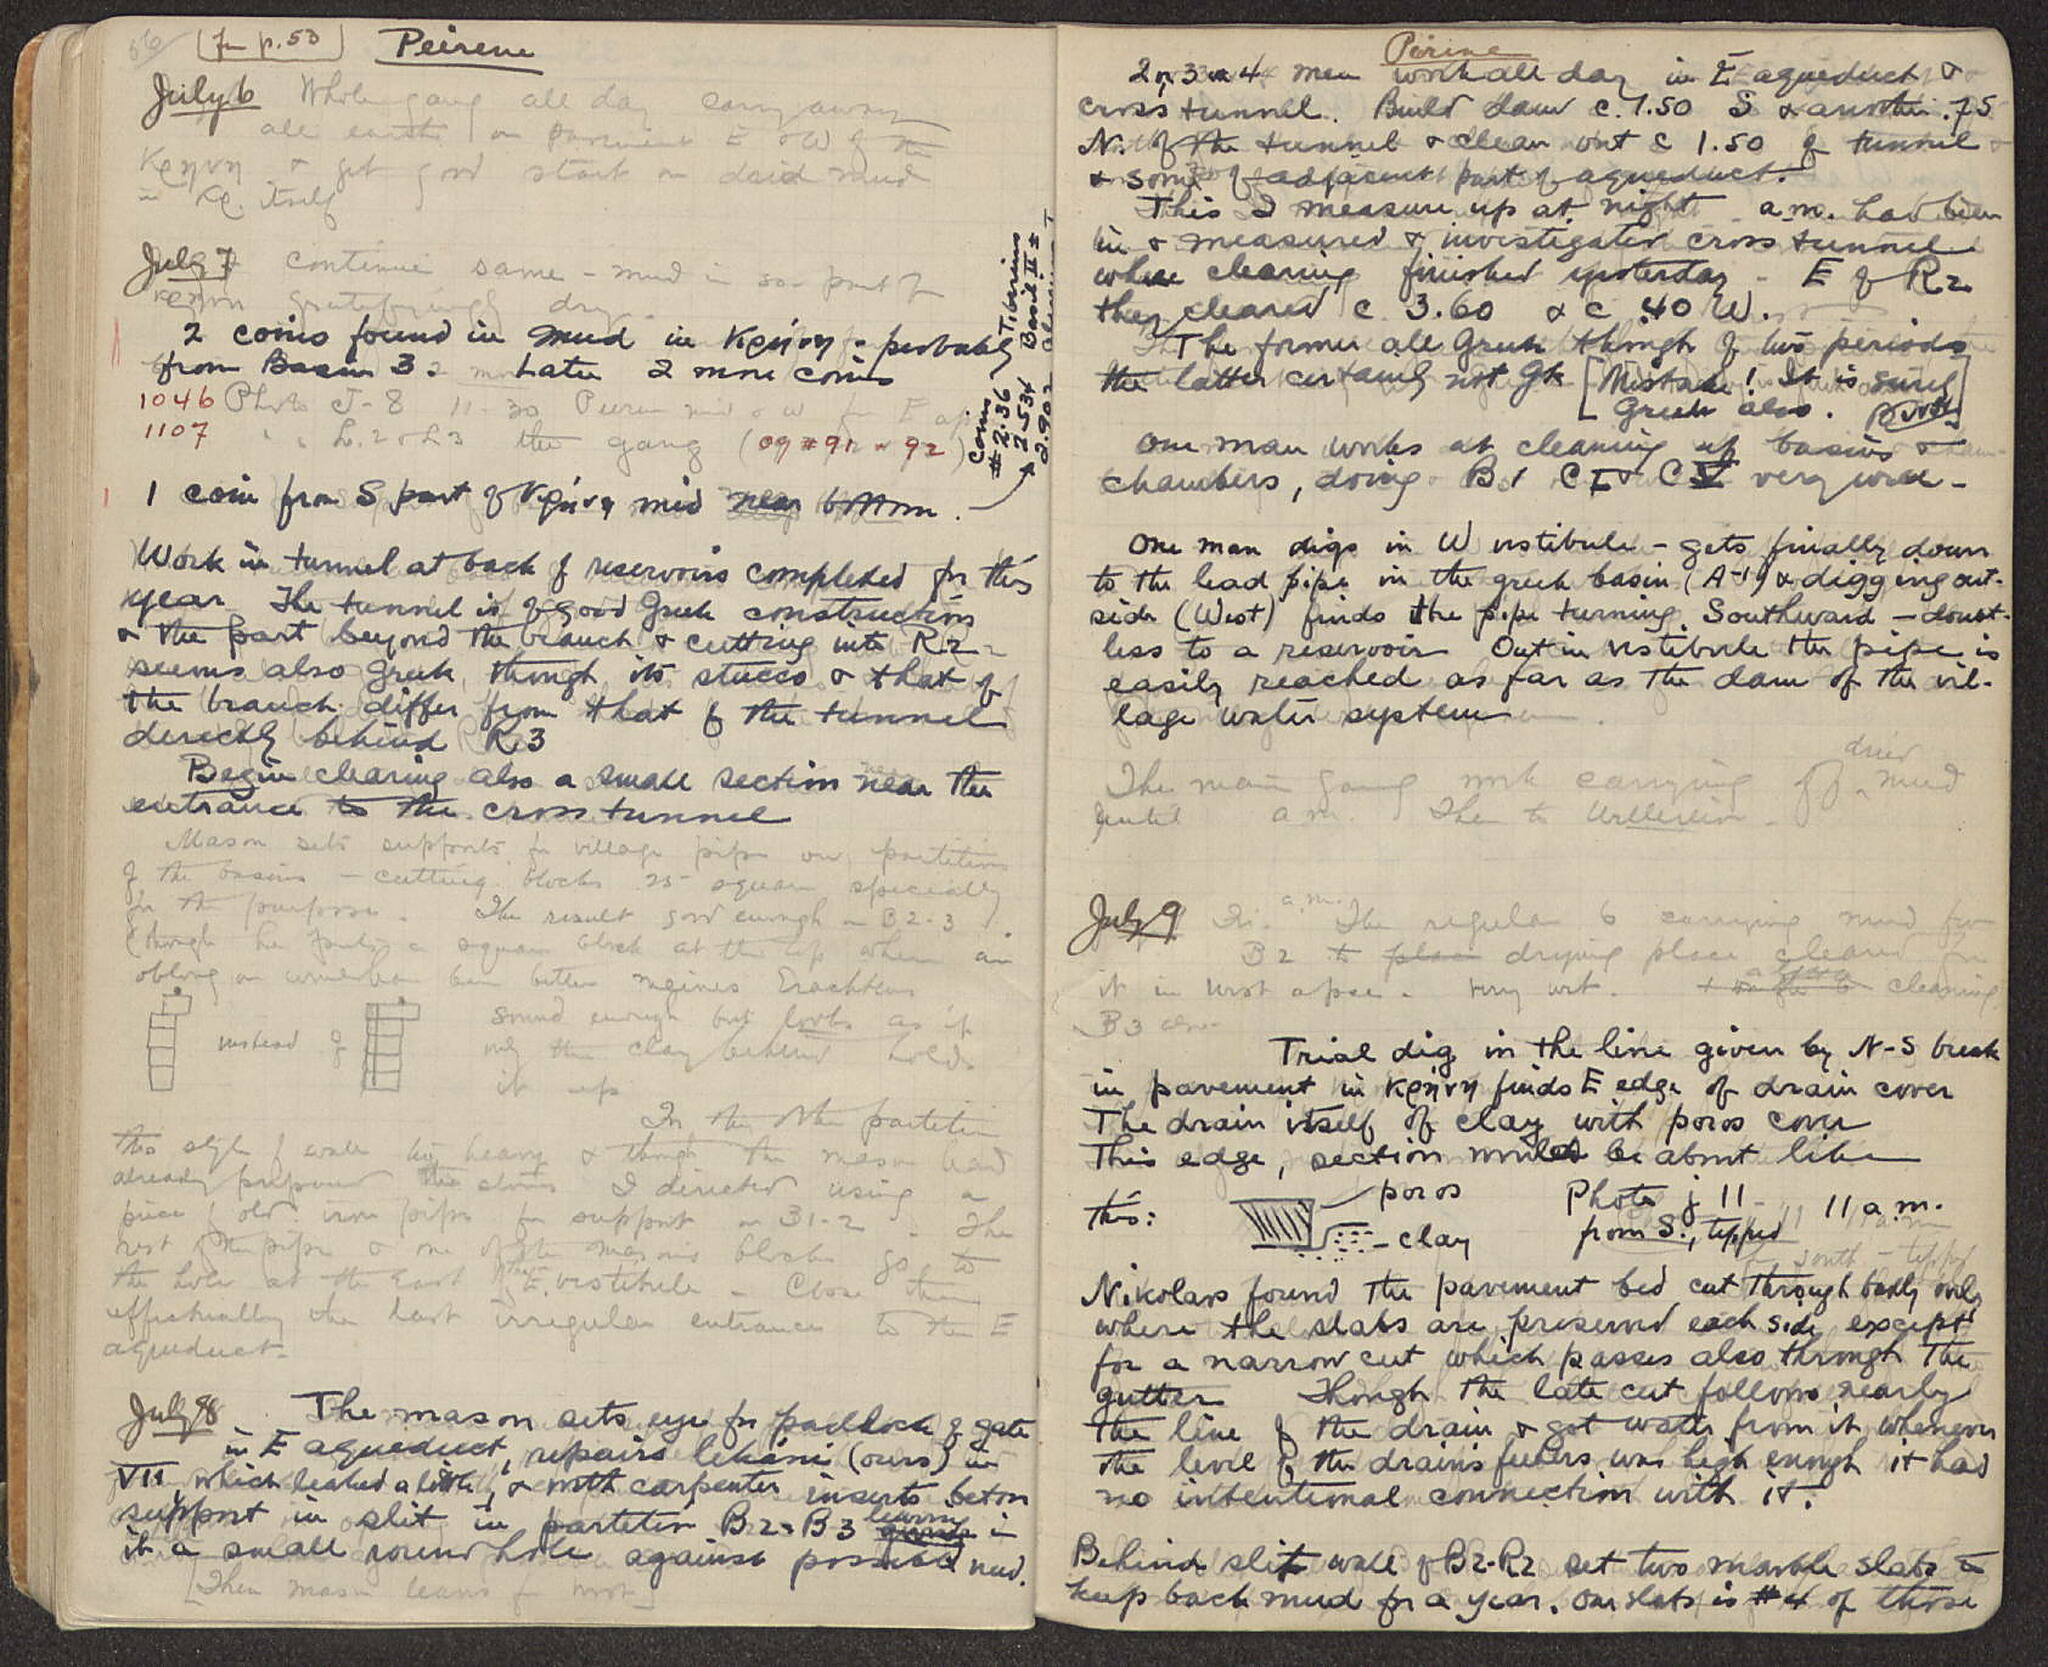 56 [fr p. 53] Peirene
July 6 Whole gang all day carry away
all earth on pavement E & W of the
κρήνη & get good start on dried mud
in κρ. itself
July 7 continue same - mud in so. part of
κρήνη gratifyingly dry.
2 coins found in mud in κρήνη - probably
from Basin 3. Later 2 more coins
1046 Photo J-8 11-30
1107 " L.2 & L3 the gang (09 #91 & 92)
Coins Tiberius
# 2.36 Basil II ±
→ 2.534
2.902
1 coin from S part of κρήνη mid near bottom.
Work in tunnel at back of reservoirs completed for this
year The tunnel is of good Greek construction
& the part beyond the branch & cutting into R2
seems also Greek, though its stucco & that of
the branch differ from that of the tunnel
directly behind R3
Begin clearing also a small section near the
entrance to the cross tunnel
Mason sets supports for village pipe on partitions
of the basins - cutting blocks 25 square specially
for the purpose. The result good enough in B2-3
(though he puts a square block at the top where an
oblong one would have been better
instead of
sound enough but looks as if
only the clay behind holds
it up
In the other partition
this style of wall too heavy & though the mason had
already prepared the stones I directed using a
piece of old iron pipe for support in B1-2. The
rest of the pipe & one of the mason's blocks go to
the hole at the East of the E. vestibule - Close thus
effectually the last irregular entrance to the E
aqueduct.
July 8 The mason sets eye for padlock of gate
in E aqueduct, repairs lekáni (ours) in
VII, which leaked a little, & with carpenter inserts beton
support in slit in partition B2-B3 leaving in
it a small round hole against possible need.
[Then mason leaves for
Pirene
2 or 3 or 4 men work all day in E aqueduct &
cross tunnel. Build dam c. 1.50 S & another .75
N. of the tunnel & clean out c 1.50 of tunnel
& some of adjacent part of aqueduct.
This I measure up at night a.m. had been
in & measured & investigated cross tunnel
where clearing finished yesterday - E of R2
they cleared c 3.60 & c .40 W.
The former all Greek though of two periods
the latter certainly not Gk [Mistake! It is surely
Greek also.
One man works at cleaning up basins &
chambers, doing B.1 C I & C V very well -
One man digs in W vestibule - gets finally down
to the lead pipe in the greek basin (A-1) & digging out-
side (West) finds the pipe turning Southward - doubt-
less to a reservoir Out in vestibule the pipe is
easily reached as far as the dam of the vil-
lage water system
The main gang work carrying off dried mud
until a.m. Then to
July 9 a.m. The regular 6 carrying mud from
B2 to place drying place cleared for
it in west apse. Very wet. cleaning
B3 also.
Trial dig in the line given by N-S break
in pavement in κρήνη finds E edge of drain cover
The drain itself of clay with poros cover
This edge, section would be about like
this: poros Photo j 11 - 11 a.m.
clay from S., tipped
south - tipped
Nikolaos found the pavement bed cut through badly only
where the slabs are preserved each side except
for a narrow cut which passes also through the
gutter Though the late cut follows nearly
the line of the drain & got water from it whenever
the level of the drain's feeders was high enough it had
no intentional connection with it.
Behind slit wall of B2-R2 set two marble slabs to
keep back mud for a year. One slab is #4 of those